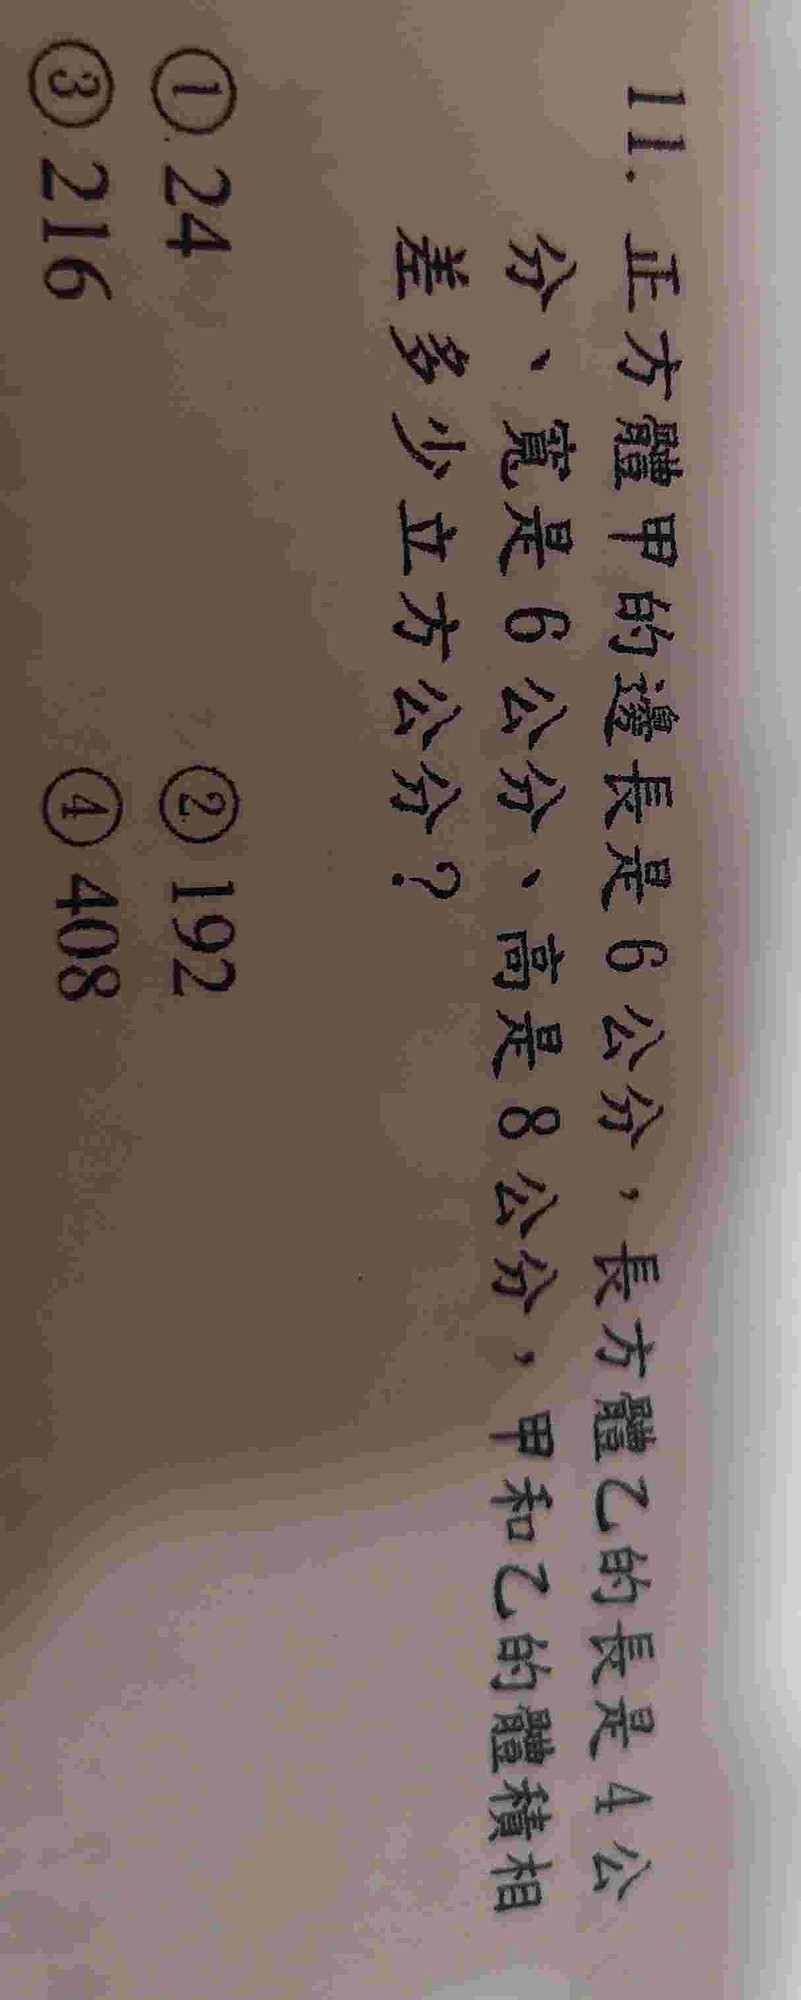 11. 正方體甲的邊長是6公分，長方體乙的長是4公
分、寬是6公分、高是8公分，甲和乙的體積相
差多少立方公分？
① 24 ② 192
③ 216 ④ 408